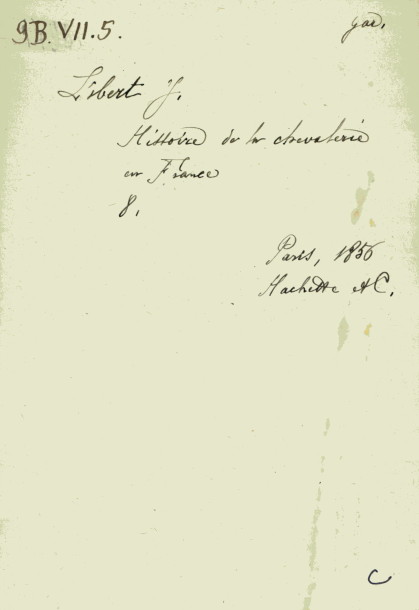 9B. VII. 5.
gad,
Libert J.
Histoire de la chevalerie
en France
8,
Paris, 1856
Hachette et C.
C